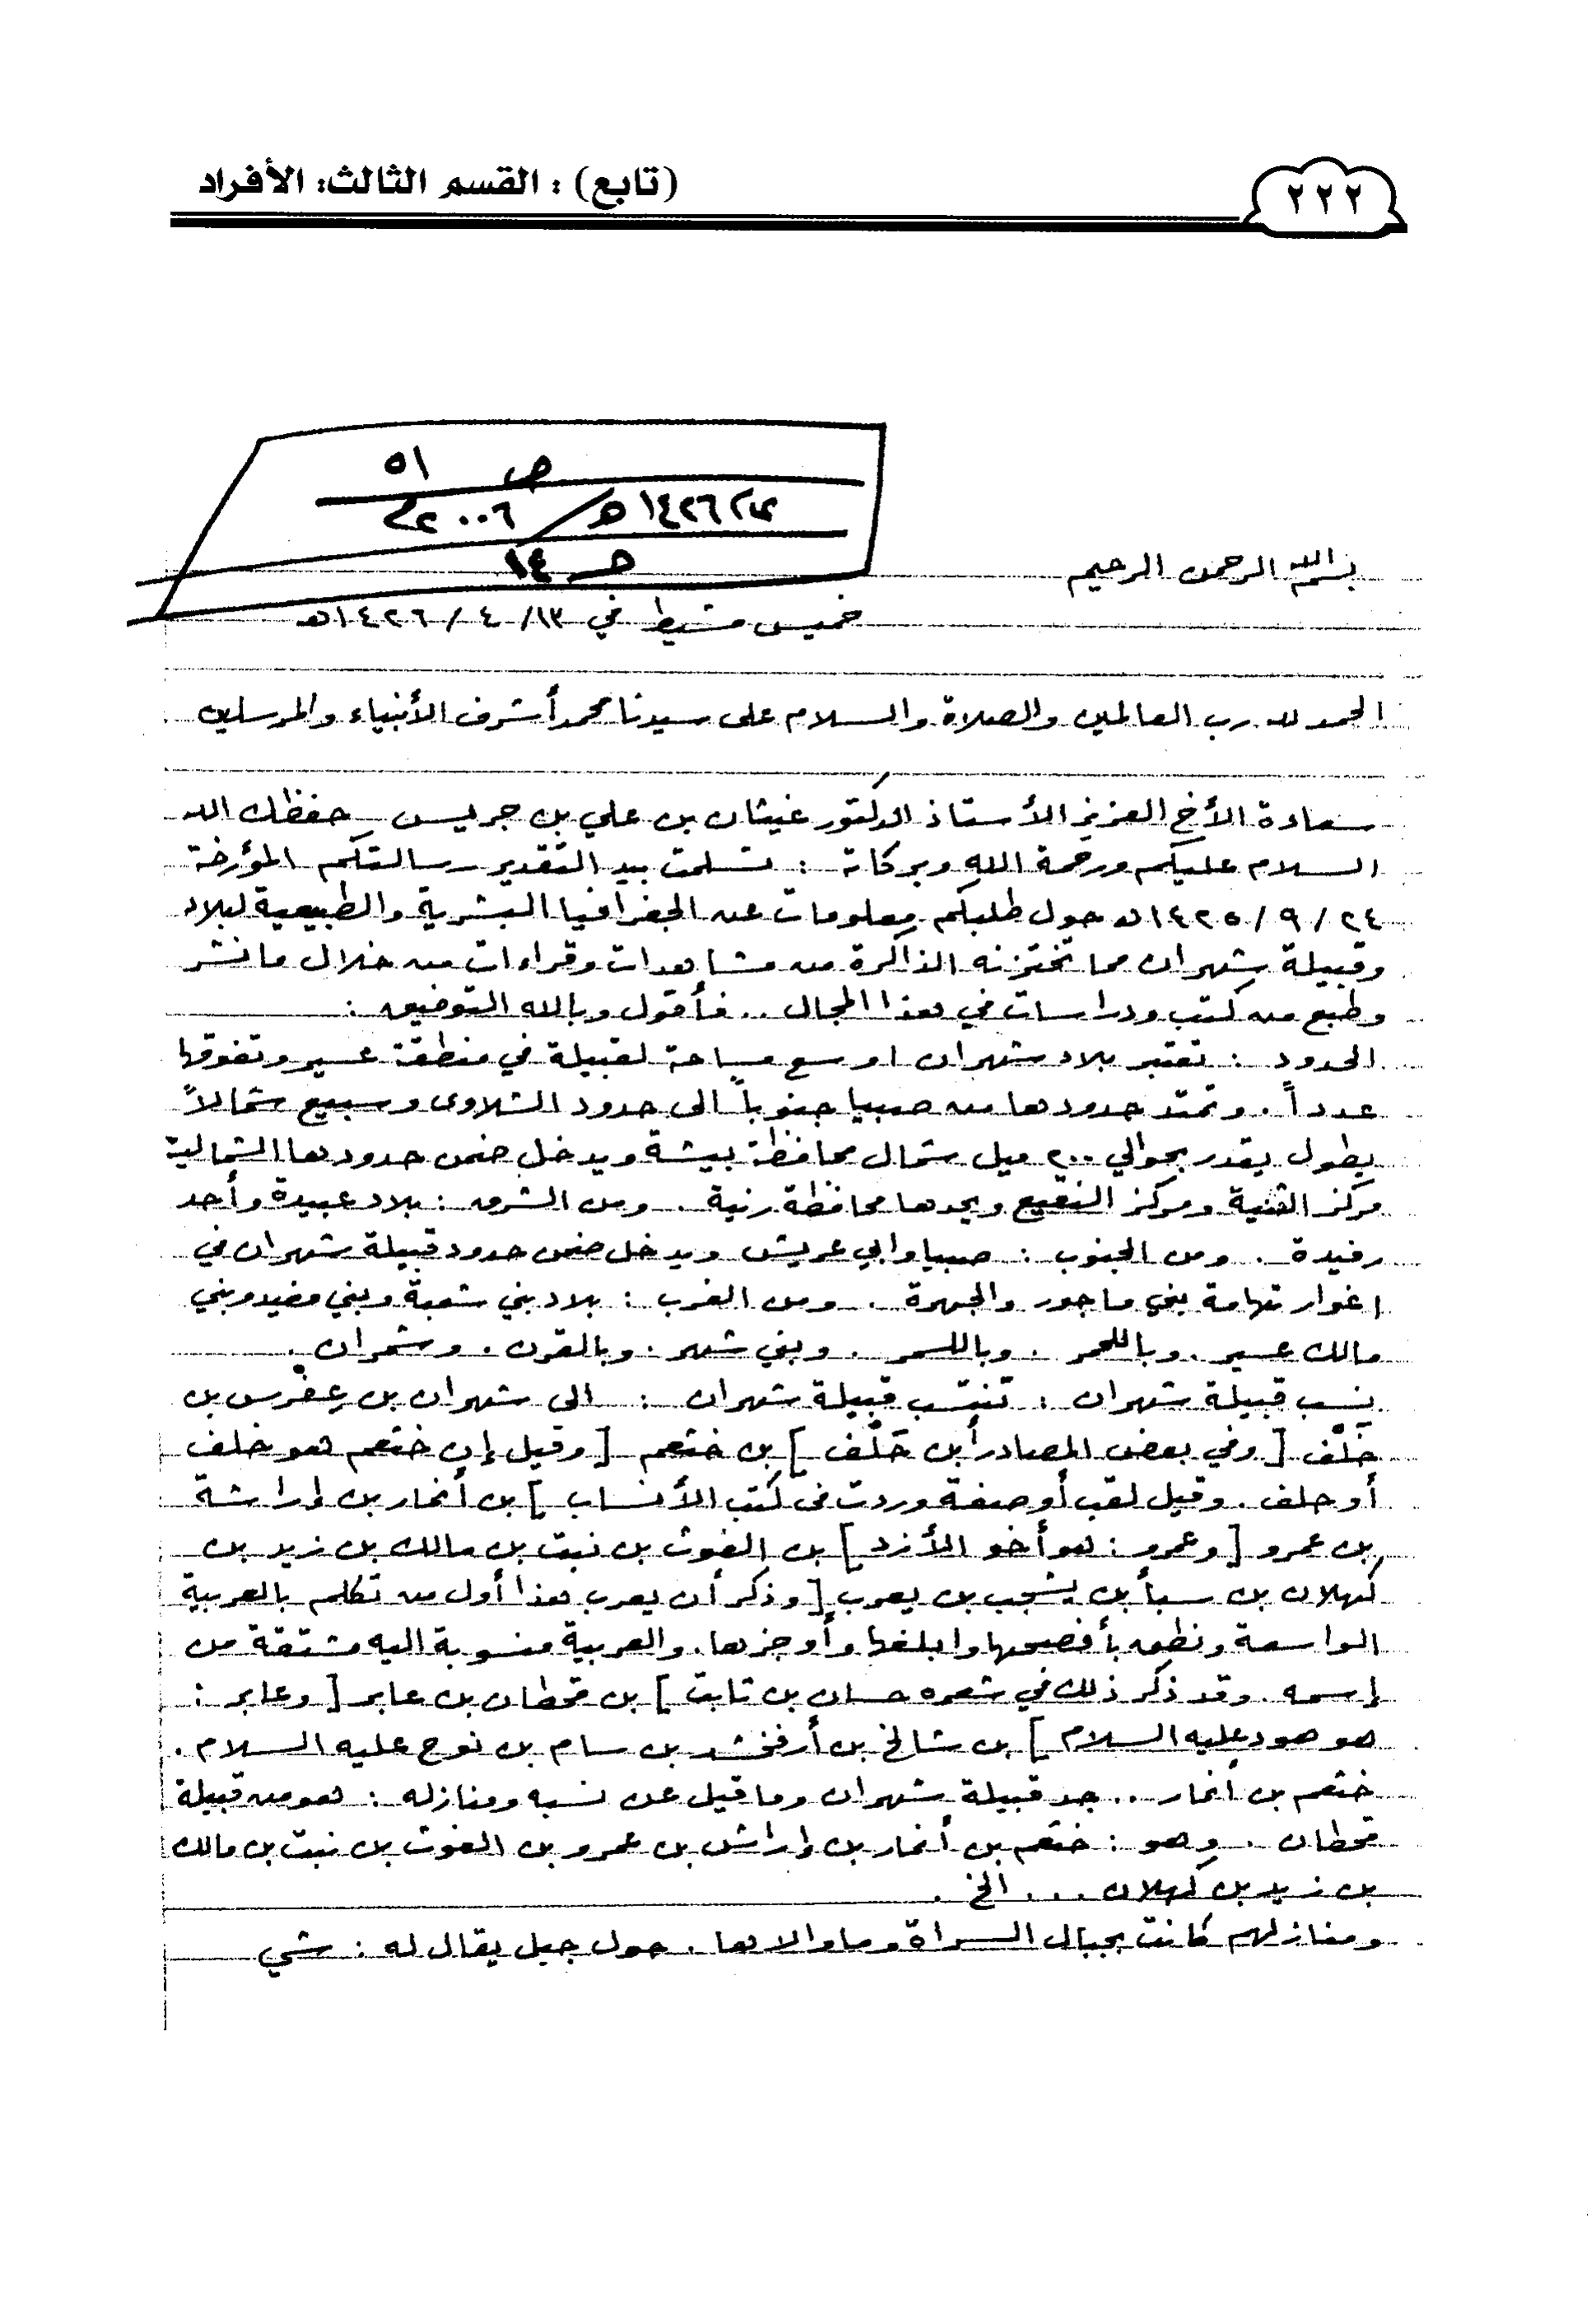 (تابع) : القسم الثالث: الأفراد
٢٢٢
ص ٥١
١٤٢٦هـ / ٢٠٠٦م
حـ ١٤
بسم الله الرحمن الرحيم
خميس مشيط في ١٣/ ٤ / ١٤٢٦هـ
الحمد لله رب العالمين والصلاة والسلام على سيدنا محمد أشرف الأنبياء والمرسلين
سعادة الأخ العزيز الأستاذ الدكتور غيثان بن علي بن جريس حفظك الله
السلام عليكم ورحمة الله وبركاته : تسلمت بيد التقدير رسالتكم المؤرخة
٢٤ / ٩ / ١٤٢٥هـ حول طلبكم معلومات عن الجغرافيا البشرية والطبيعية لبلاد
وقبيلة شهران مما تختزنه الذاكرة من مشاهدات وقراءات من خلال ما نشر
وطبع من كتب ودراسات في هذا المجال .. فأقول وبالله التوفيق :
الحدود : تعتبر بلاد شهران اوسع مساحة لقبيلة في منطقة عسير وتفوقها
عدداً . وتمتد حدودها من صبيا جنوباً الى حدود الشلاوى وسبيع شمالاً
بطول يقدر بحوالي ٢٠٠ ميل شمال محافظة بيشة ويدخل ضمن حدودها الشمالية
مركز الثنية ومركز النقيع ويحدها محافظة رنية . ومن الشرق : بلاد عبيدة وأحد
رفيدة . ومن الجنوب : صبيا وابي عريش ويدخل ضمن حدود قبيلة شهران في
اغوار تهامة بني ماجور والجهرة . ومن الغرب : بلاد بني شعبة وبني مغيد وبني
مالك عسير . وباللحمر . وباللسمر . وبني شهر . وبالقرن . وشمران .
نسب قبيلة شهران : تنتسب قبيلة شهران : الى شهران بن عِفْرس بن
خَلْف [ وفي بعض المصادر أبن حَلْف ] بن خثعم [ وقيل إن خثعم هو خلف
أو حلف . وقيل لقب أو صفة وردت في كتب الأنساب ] بن أنمار بن إراشة
بن عمرو [ وعمرو : هو أخو الأزد ] بن الغوث بن نبت بن مالك بن زيد بن
كهلان بن سبأ بن يشجب بن يعرب [ وذكر أن يعرب هذا أول من تكلم بالعربية
الواسعة ونطق بأفصحها وابلغها وأوجزها . والعربية منسوبة اليه مشتقة من
إسمه . وقد ذكر ذلك في شعره حسان بن ثابت ] بن قحطان بن عابر [ وعابر :
هو هود عليه السلام ] بن شالخ بن أرفخشد بن سام بن نوح عليه السلام .
خثعم بن أنمار .. جد قبيلة شهران وما قيل عن نسبه ومنازله : هو من قبيلة
قحطان . وهو : خثعم بن أنمار بن إراش بن عمرو بن الغوث بن نبت بن مالك
بن زيد بن كهلان ... الخ .
ومنازلهم كانت بجبال السراة وما والاها . حول جبل يقال له : شي